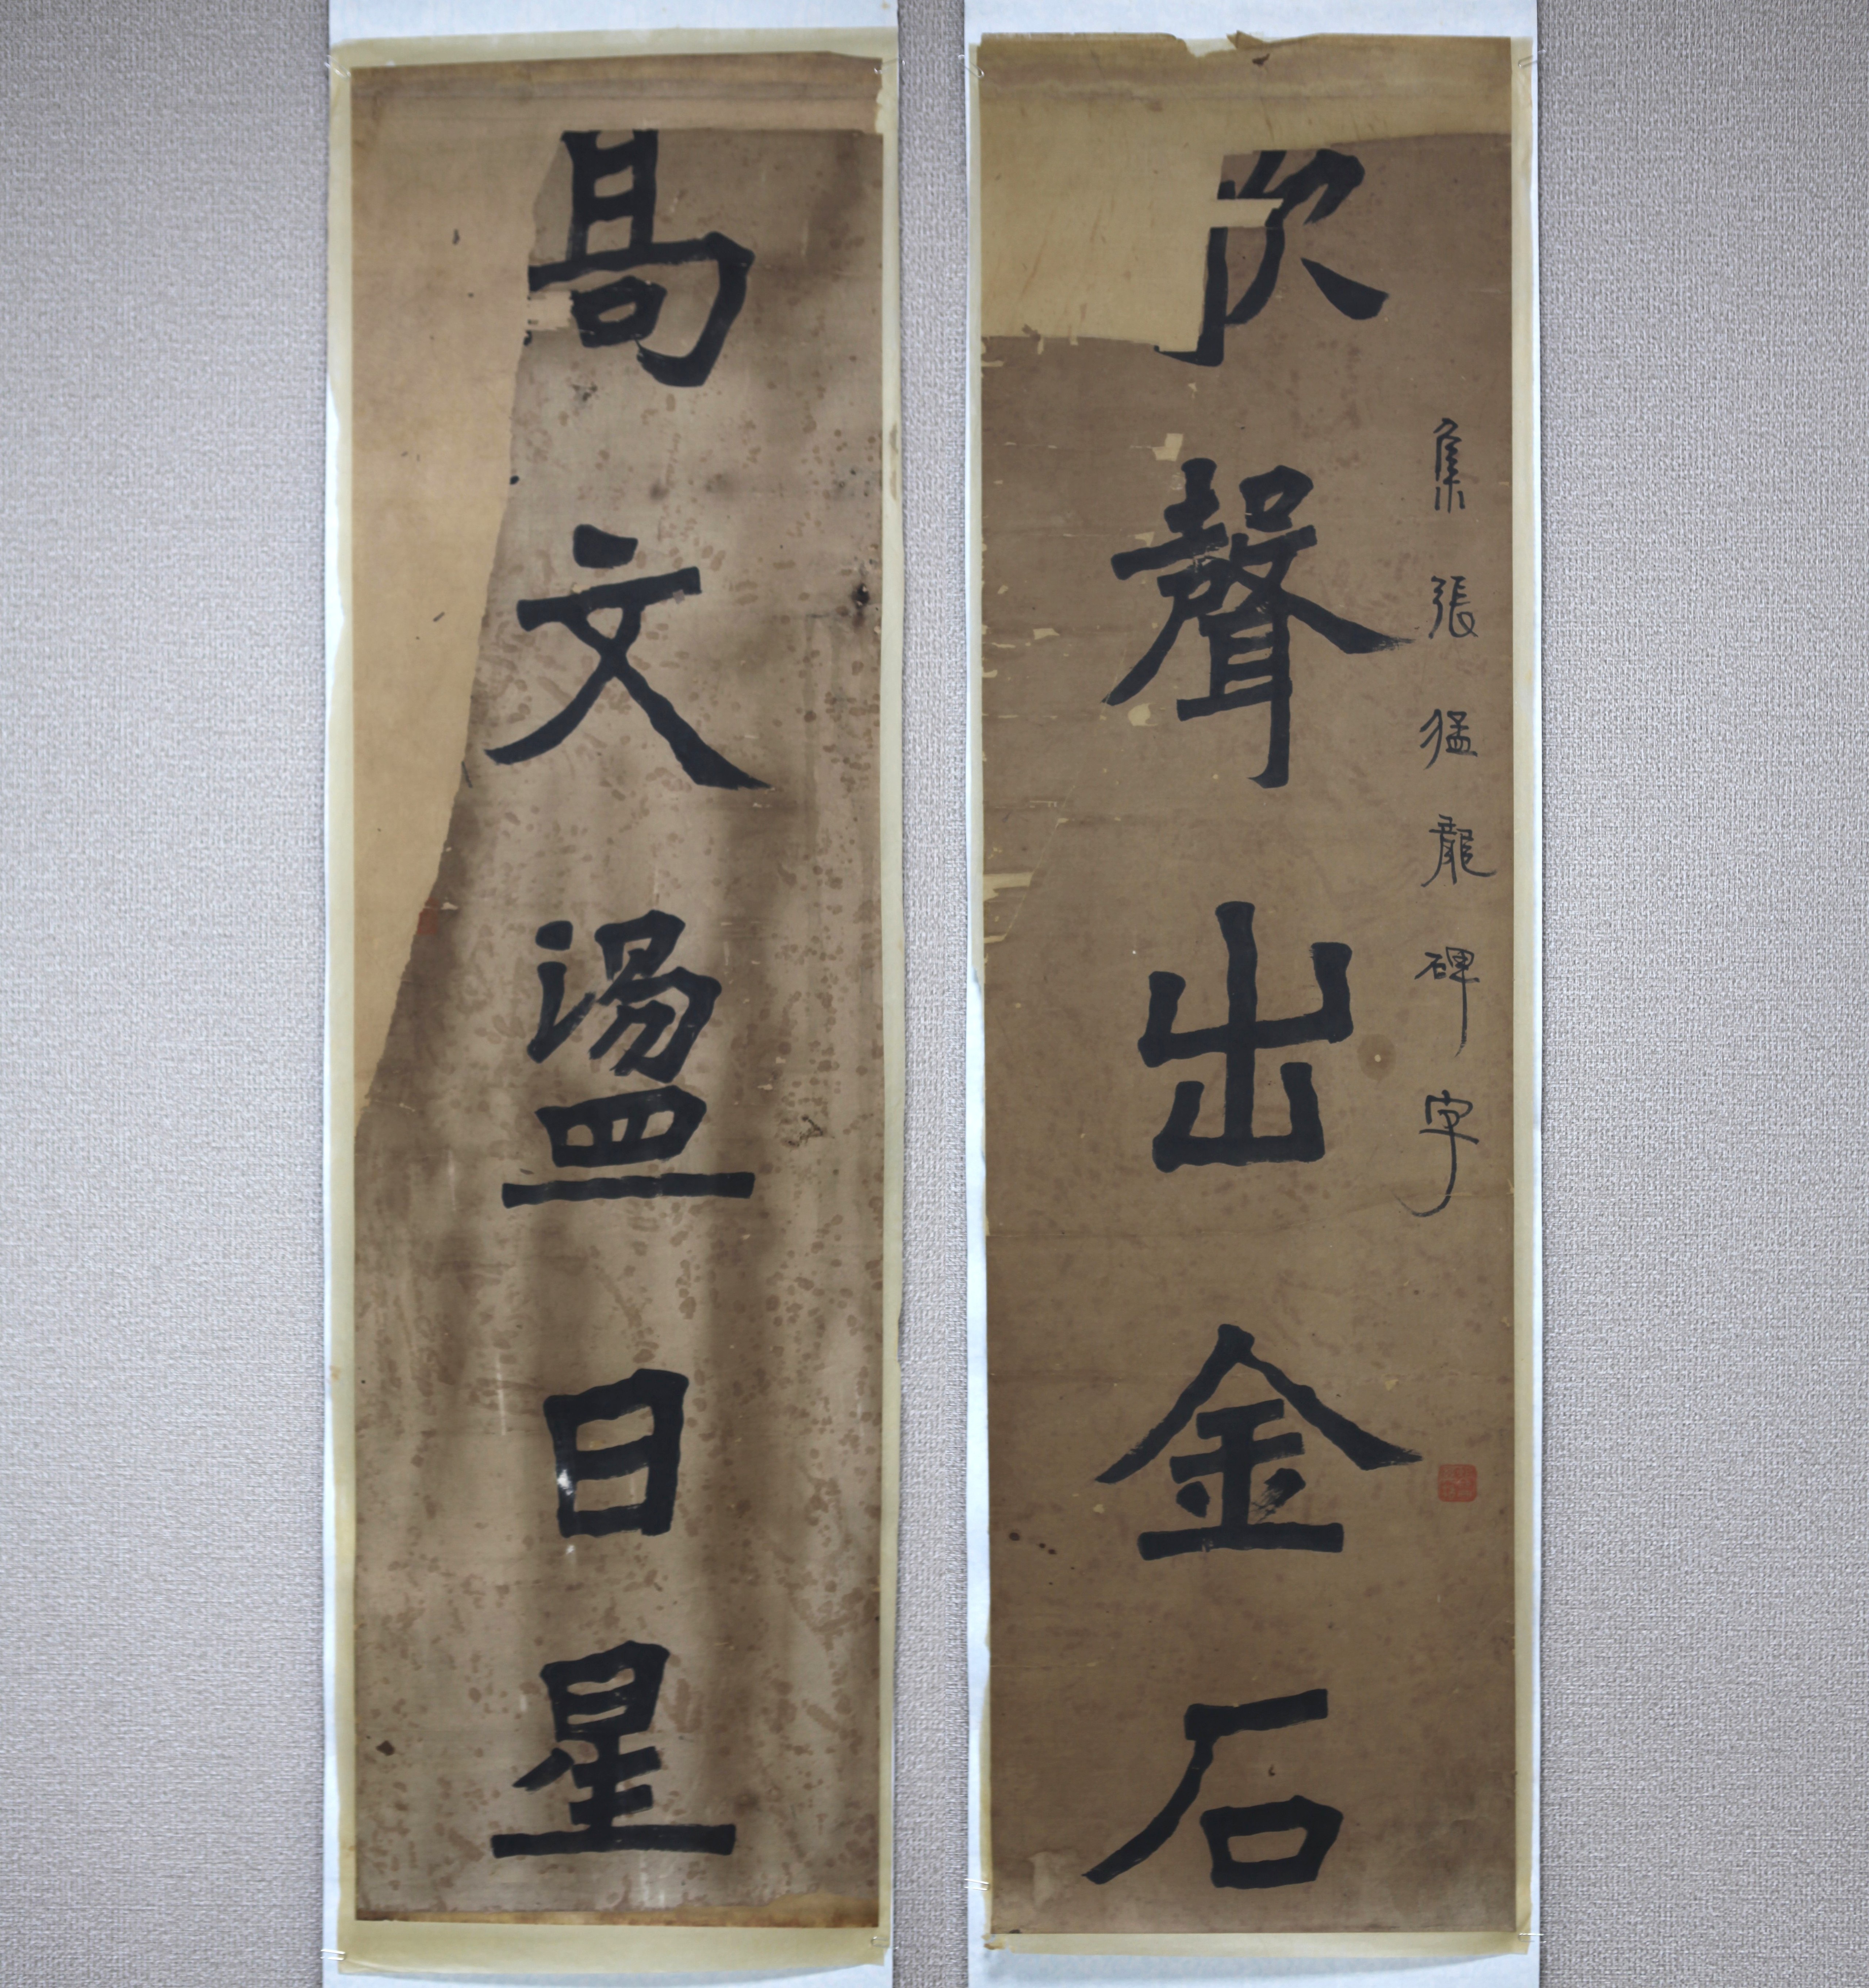 集張猛龍碑字
歌聲出金石
高文盪日星